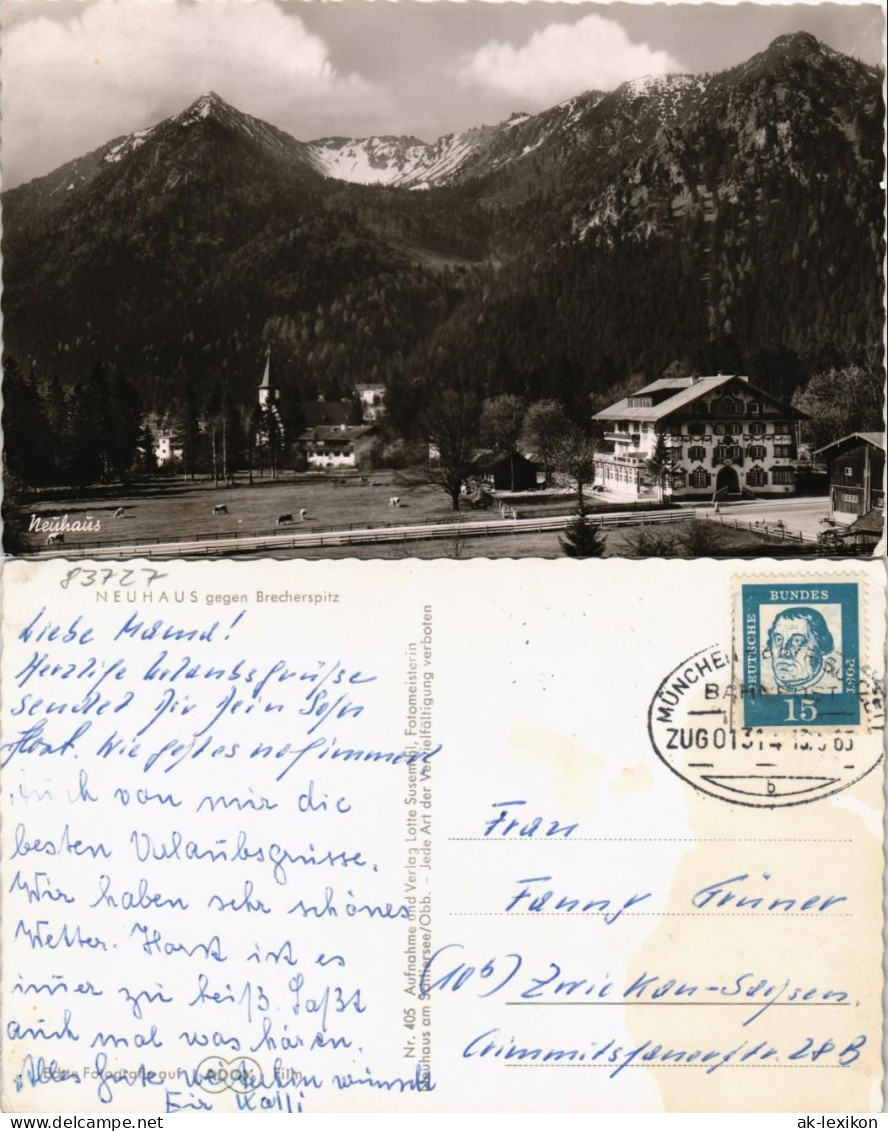 Neuhaus
83727
NEUHAUS gegen Brecherspitz
Liebe Mama!
Herzliche Urlaubsgrüße
sendet Dir Dein Sohn
Horst. Wie geht es
Auch von mir die
besten Uulaubsgrüsse.
Wir haben sehr schönes
Wetter. Horst ist es
imer zu heiß. Laßt
auch mal was hören.
Alles Gute weiterhin wünsch
Eir Kalli
Echte Fotografie auf ADOX Film
Nr. 405 Aufnahme und Verlag Lotte Susemihl, Fotomeisterin
Neuhaus am Schliersee/Obb. – Jede Art der Vervielfältigung verboten
DEUTSCHE BUNDESPOST
15
MÜNCHEN
BAHNPOST
ZUG01314
b
Frau
Fanny Grüner
(10b) Zwickau-Sachsen.
Crimmitschauerstr. 28B
© ak-lexikon.com
ak-lexikon